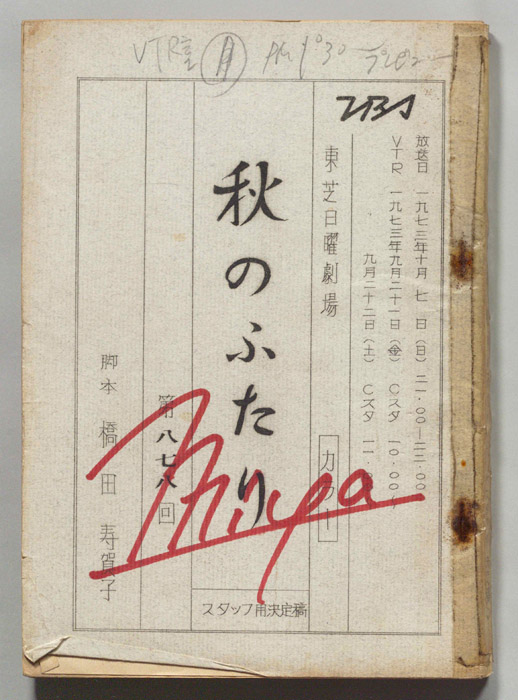 VTR室 月 PM 1°30
TBS
放送日 一九七三年十月 七 日(日)二一・〇〇―二二・〇〇
VTR 一九七三年九月二十一日(金) Cスタ 一〇・〇〇
九月二十二日(土) Cスタ 一一・
東芝日曜劇場
カラー
秋のふたり
スタッフ用決定稿
第八七八回
脚本 橋田寿賀子
Miya